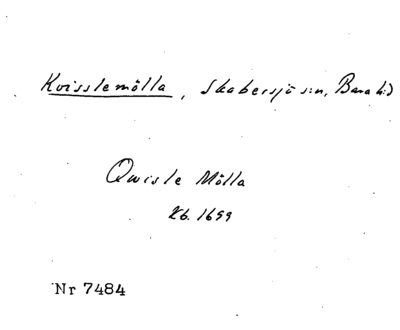 Kvisslemölla, Skabersjö s:n, Bara h:d
Qwisle Mölla
Kb. 1699
Nr 7484